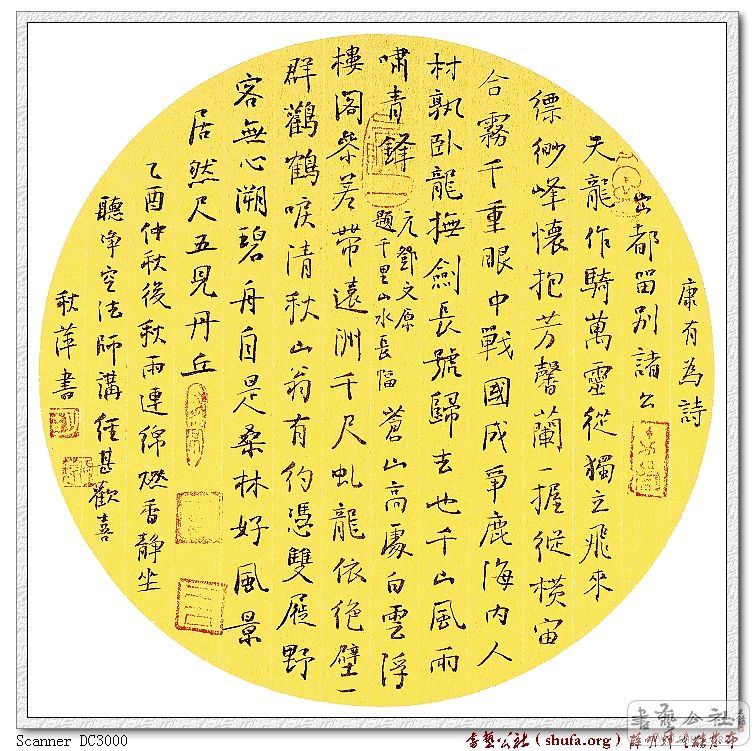 康有為詩
出都留別諸公
天龍作騎萬靈從獨立飛來
縹緲峰懷抱芳馨蘭一握縱橫宙
合霧千重眼中戰國成爭鹿海內人
材孰臥龍撫劍長號歸去也千山風雨
嘯青鋒
元鄧文原
題千里山水長幅
蒼山高處白雲浮
樓閣參差帶遠洲千尺虬龍依絕壁一
群鸛鶴唳清秋山翁有約憑雙屐野
客無心溯碧舟自是桑林好風景
居然尺五見丹丘
乙酉仲秋後秋雨連綿燃香靜坐
聽淨空法師講經甚歡喜
秋萍書
Scanner DC3000
書藝公社(shufa.org)
書藝公社